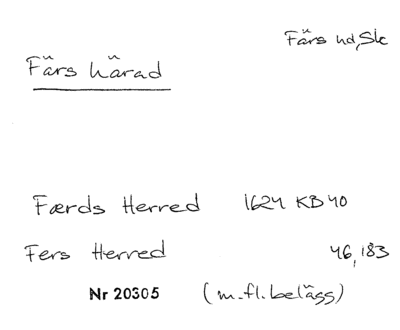 Färs hd, Sk
Färs härad
Færds Herred 1624 KB 40
Fers Herred 46, 183
Nr 20305 (m.fl. belägg)